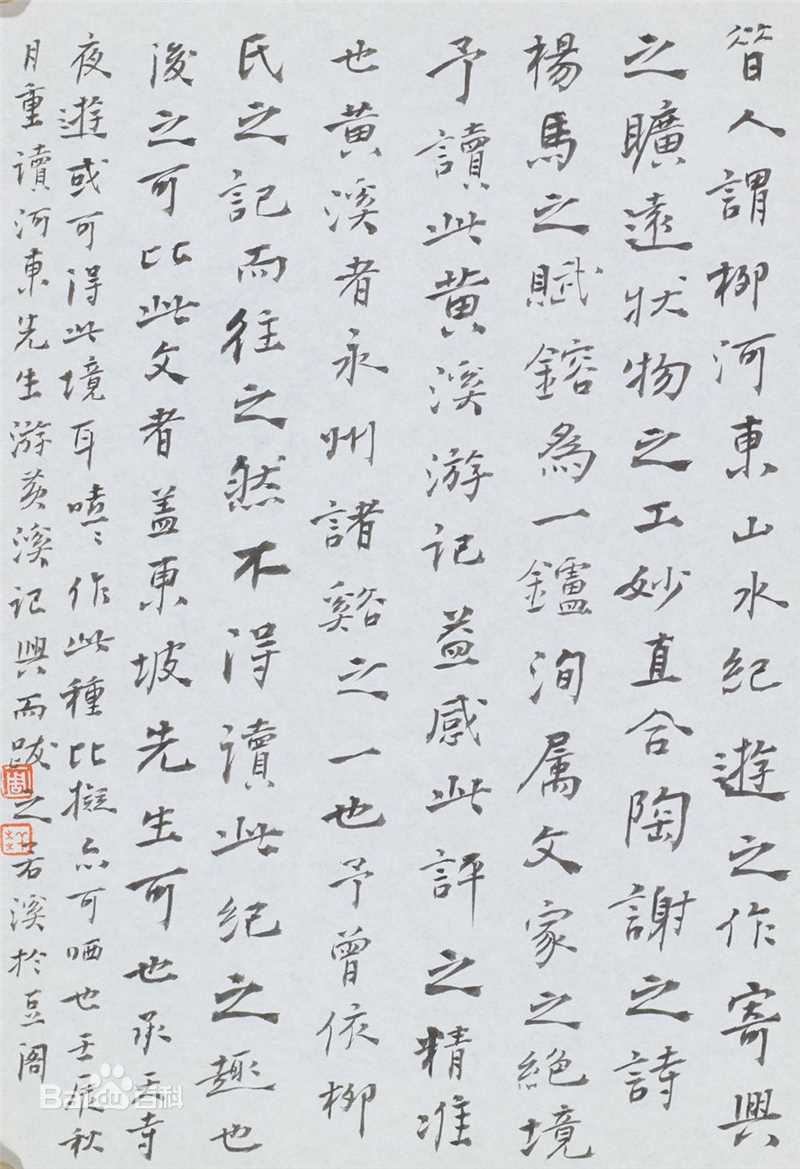 昔人謂柳河東山水紀遊之作寄興
之曠遠狀物之工妙直合陶謝之詩
楊馬之賦鎔為一鑪洵屬文家之絕境
予讀此黄溪游记益感此評之精准
也黄溪者永州諸谿之一也予曾依柳
氏之記而往之然不得讀此紀之趣也
後之可比此文者盖東坡先生可也承天寺
夜遊或可得此境耳嘻〻作此種比擬亦可哂也壬辰秋
月重讀河東先生游黄溪记興而跋之若溪於豆阁
周
Baidu百科